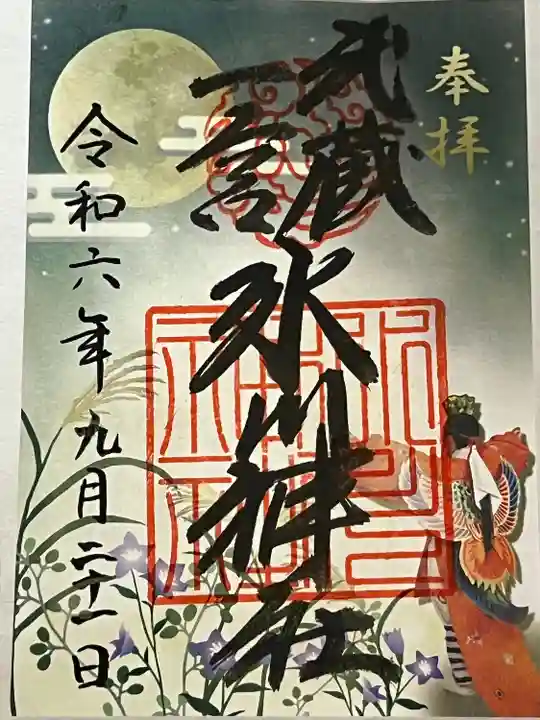 奉拝
武蔵
一宮
氷川神社
令和六年九月二十一日